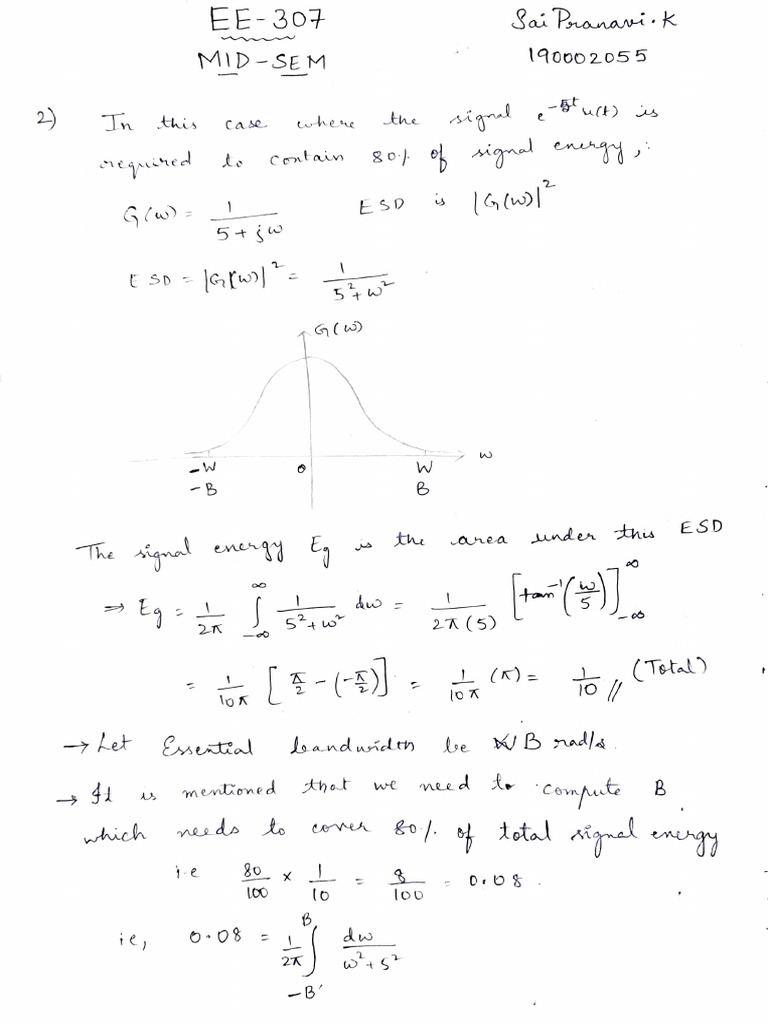 EE-307
Sai Pranavi.K
MID-SEM
190002055
2) In this case where the signal e^-5t u(t) is
required to contain 80% of signal energy,:
G(ω) = 1/(5+jω)   ESD is |G(ω)|²
ESD = |G(ω)|² = 1/(5²+ω²)
G(ω)
-W 0 W ω
-B B
The signal energy Eg is the area under this ESD
⇒ Eg = 1/2π ∫_-∞^∞ 1/(5²+ω²) dω = 1/2π(5) [tan⁻¹(ω/5)]_-∞^∞
= 1/10π [π/2 - (-π/2)] = 1/10π (π) = 1/10 // (Total)
→ Let Essential bandwidth be B rad/s.
→ It is mentioned that we need to compute B
which needs to cover 80% of total signal energy
i.e 80/100 × 1/10 = 8/100 = 0.08.
ie, 0.08 = 1/2π ∫_-B^B dω/(ω²+5²)